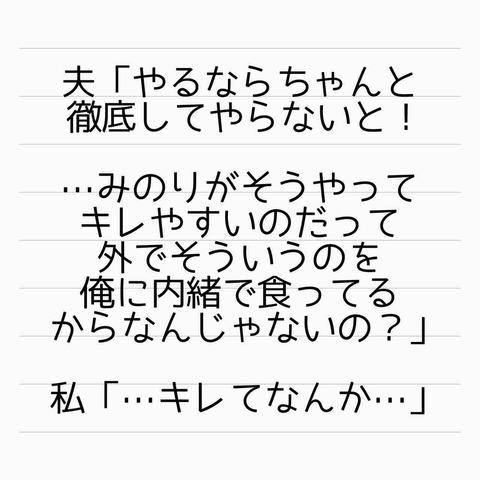 夫「やるならちゃんと
徹底してやらないと！
…みのりがそうやって
キレやすいのだって
外でそういうのを
俺に内緒で食ってる
からなんじゃないの？」
私「…キレてなんか…」